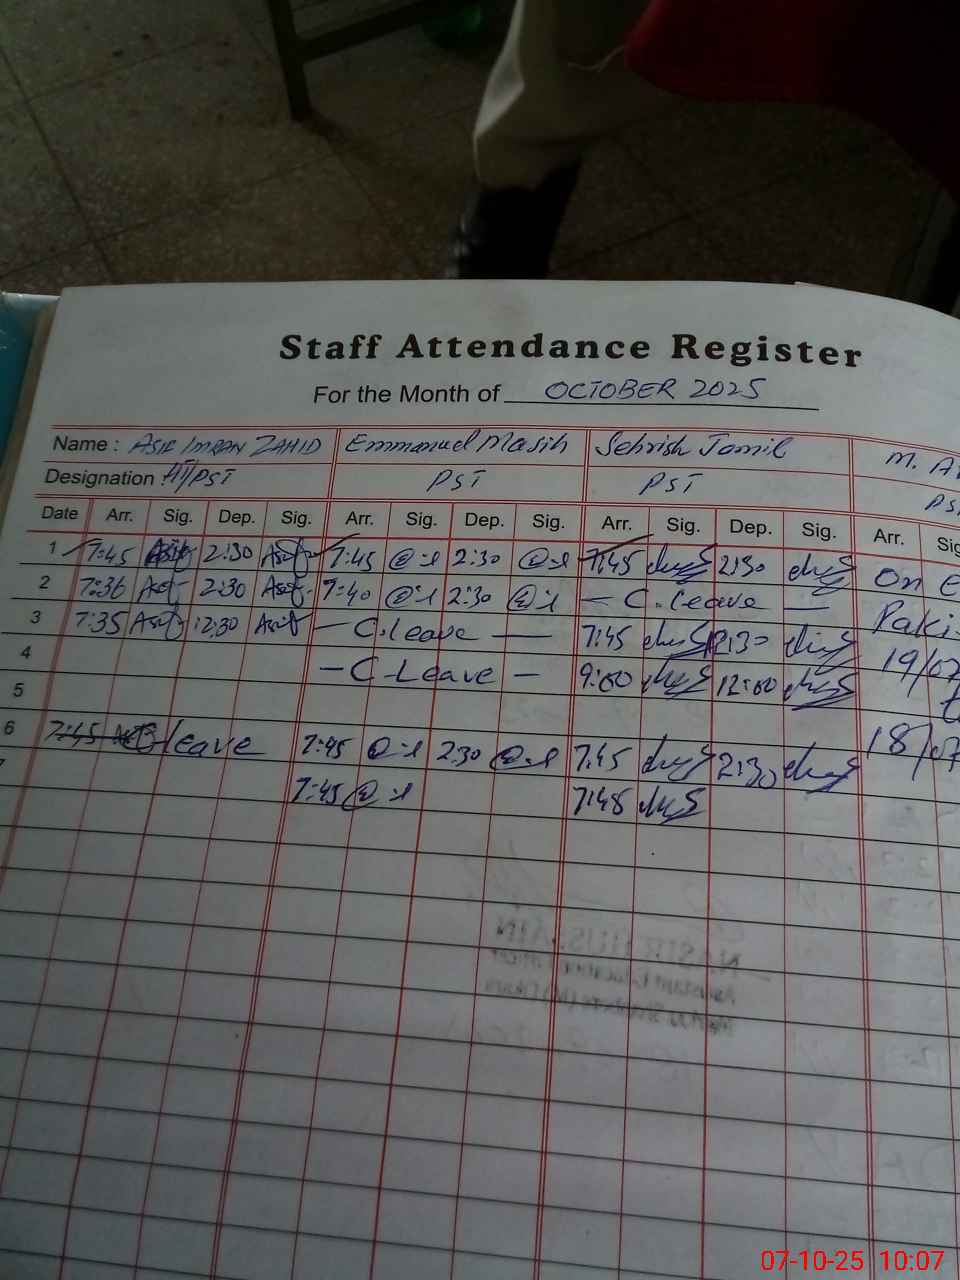 Staff Attendance Register
For the Month of OCTOBER 2025
Name : ASIF IMRAN ZAHID Emmanuel Masih Sehrish Jamil M.
Designation : HT/PST PST PST
Date Arr. Sig. Dep. Sig. Arr. Sig. Dep. Sig. Arr. Sig. Dep. Sig. Arr.
1 7:45 Asif 2:30 Asif 7:45 2:30 7:45 2:30 On
2 7:36 Asif 2:30 Asif 7:40 2:30 — C. leave —
3 7:35 Asif 12:30 Asif — C. leave — 7:45 12:30
4 — C. Leave — 9:00 12:00 19/07
5
6 7:45 leave 7:45 2:30 7:45 2:30 18/07
7:45 7:48
NASIR HUSSAIN
Assistant Education Officer
07-10-25 10:07